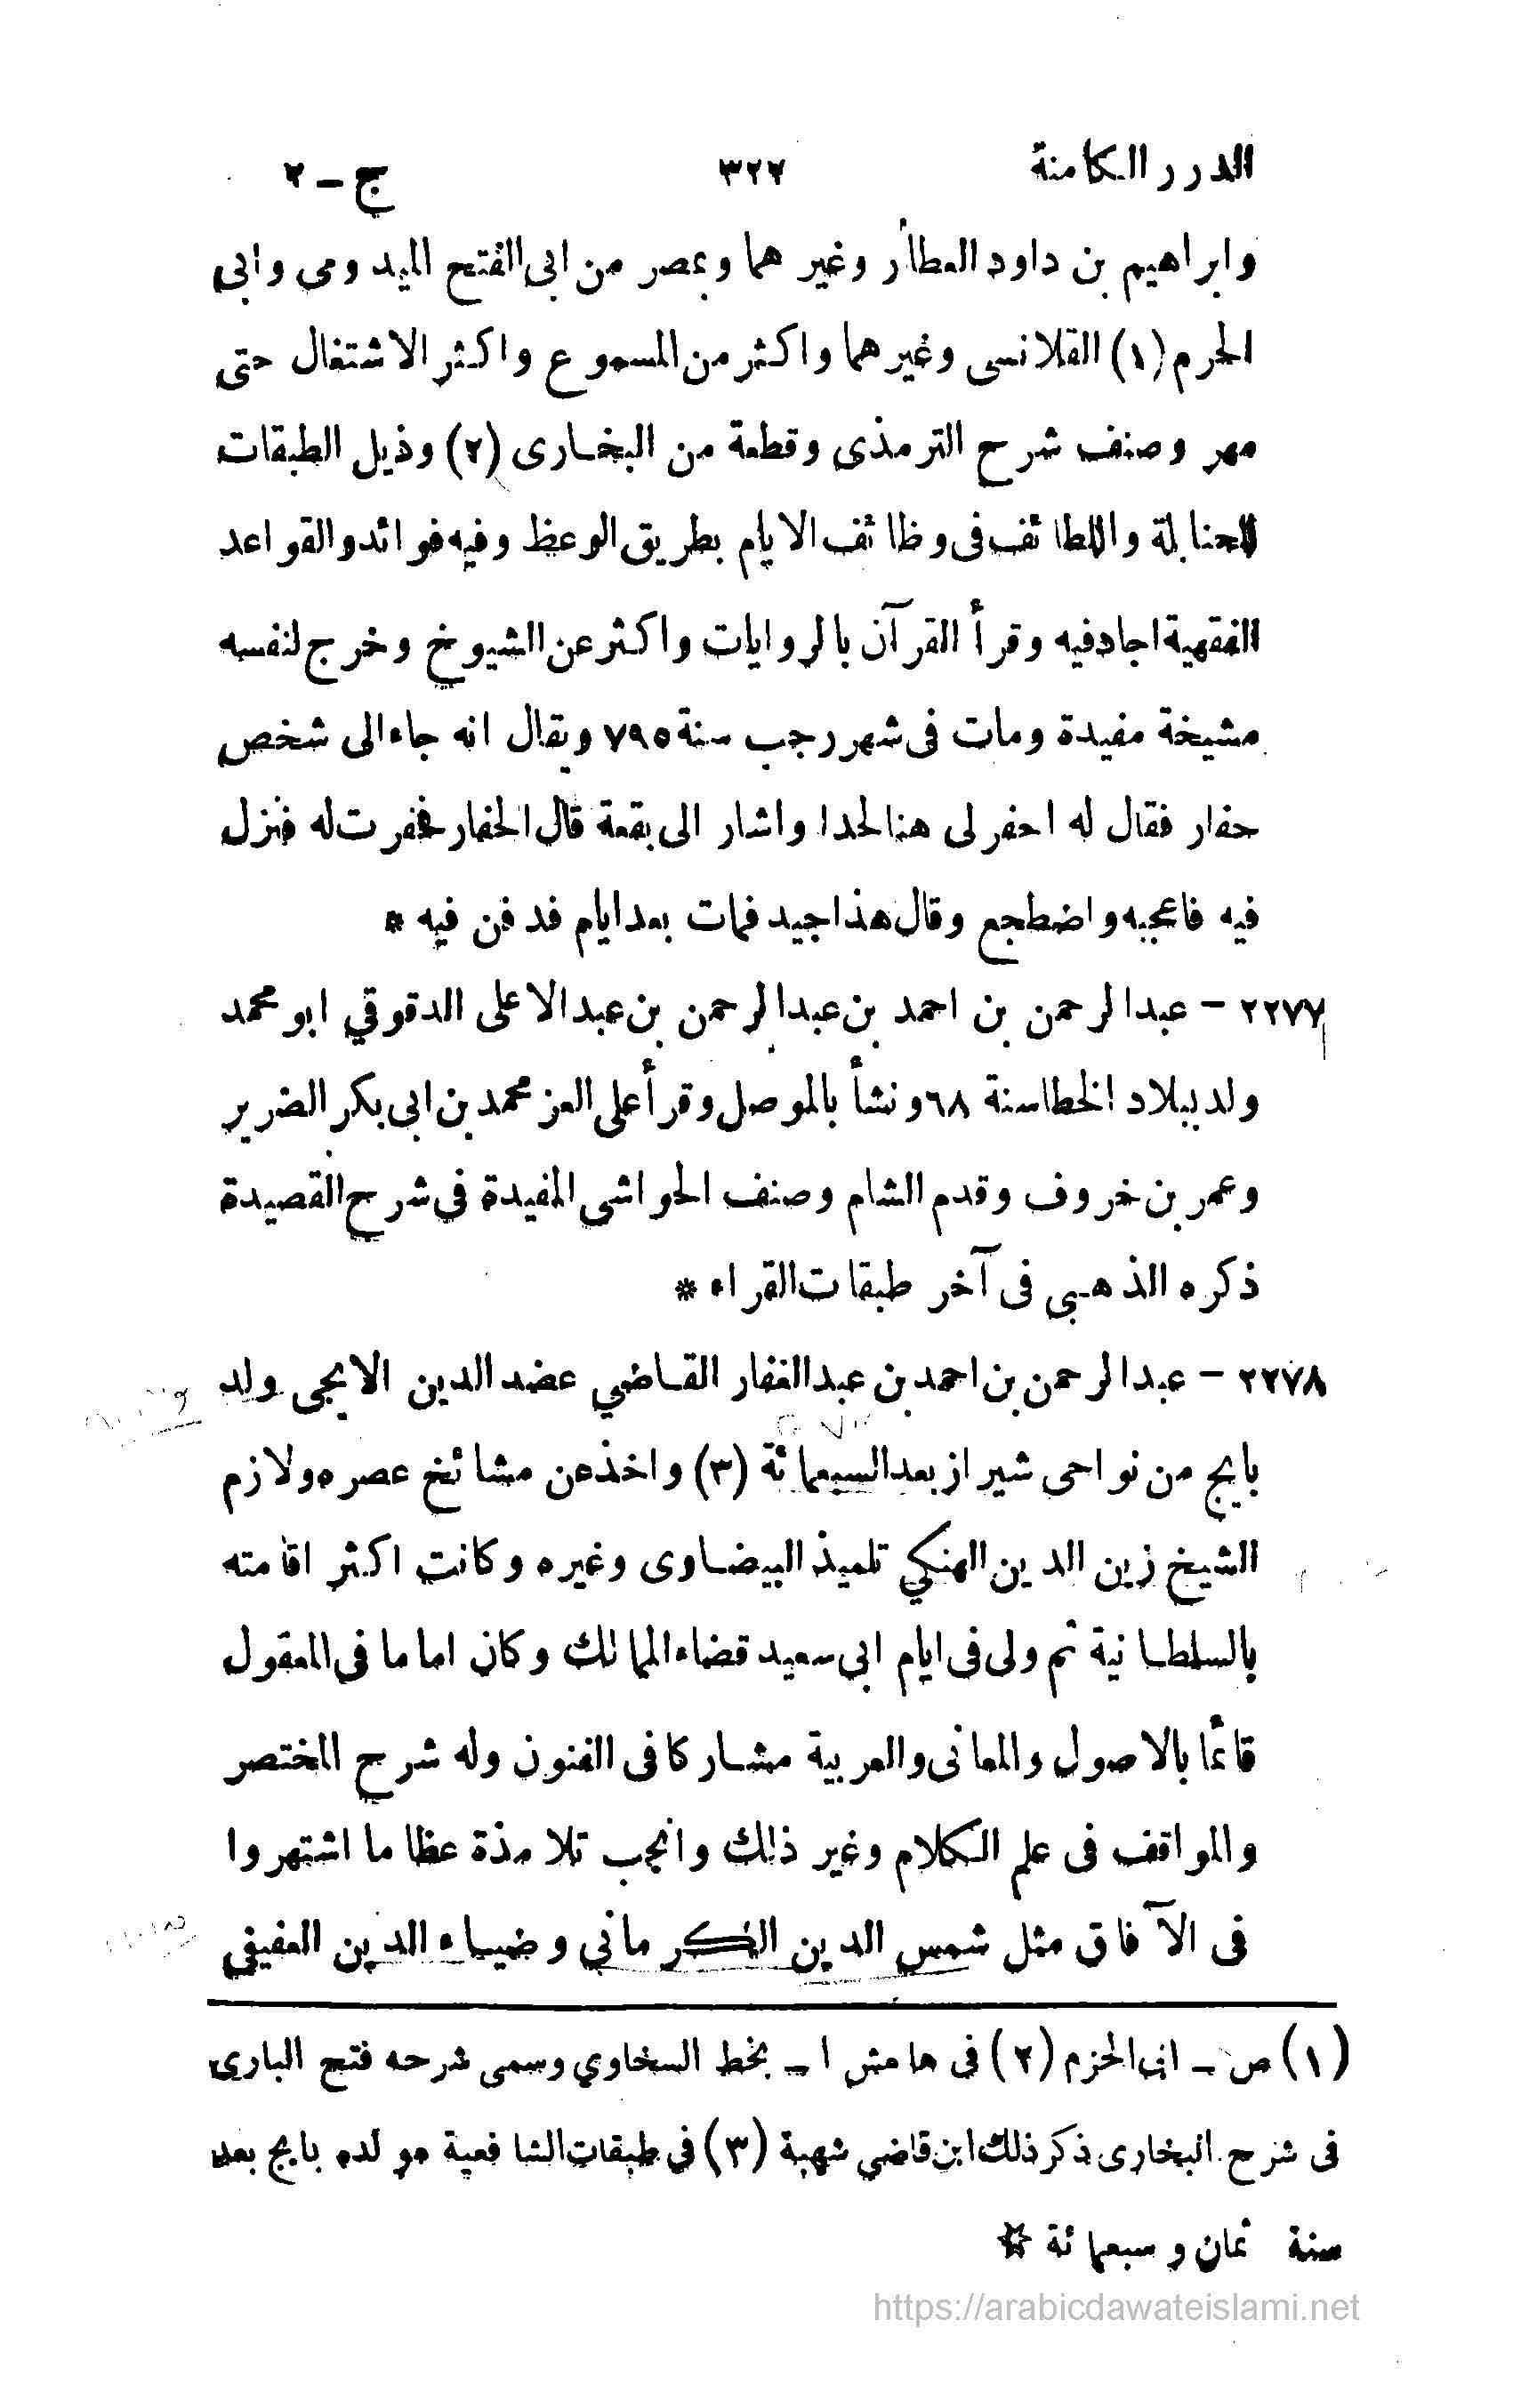 الدرر الكامنة ٣٢٢ ج - ٢
وابراهيم بن داود العطار وغيرهما وبمصر من ابى الفتح الميدومى وابى
الحرم (١) القلانسى وغيرهما واكثر من المسموع واكثر الاشتغال حتى
مهر وصنف شرح الترمذى وقطعة من البخارى (٢) وذيل الطبقات
للحنابلة واللطائف فى وظائف الايام بطريق الوعظ وفيه فوائد والقواعد
الفقهية اجاد فيه وقرأ القرآن بالروايات واكثر عن الشيوخ وخرج لنفسه
مشيخة مفيدة ومات فى شهر رجب سنة ٧٩٥ ويقال انه جاء الى شخص
حفار فقال له احفر لى هنا لحدا واشار الى بقعة قال الحفار فحفرت له فنزل
فيه فاعجبه واضطجع وقال هذا جيد فمات بعد ايام فدفن فيه *
٢٢٧٧ - عبد الرحمن بن احمد بن عبد الرحمن بن عبد الاعلى الدقوقي ابو محمد
ولد ببلاد الخطا سنة ٦٨ ونشأ بالموصل وقرأ على العز محمد بن ابى بكر الضرير
وعمر بن خروف وقدم الشام وصنف الحواشى المفيدة فى شرح القصيدة
ذكره الذهبى فى آخر طبقات القراء *
٢٢٧٨ - عبد الرحمن بن احمد بن عبد الغفار القاضي عضد الدين الايجى ولد
بايج من نواحى شيراز بعد السبعمائة (٣) واخذ عن مشائخ عصره ولازم
الشيخ زين الدين الهنكي تلميذ البيضاوى وغيره وكانت اكثر اقامته
بالسلطانية ثم ولى فى ايام ابى سعيد قضاء الممالك وكان اماما فى المعقول
قائما بالاصول والمعانى والعربية مشاركا فى الفنون وله شرح المختصر
والمواقف فى علم الكلام وغير ذلك وانجب تلامذة عظاما اشتهروا
فى الآفاق مثل شمس الدين الكرماني وضياء الدين العفيفي
(١) ص - ابى الحزم (٢) فى هامش ا - بخط السخاوي وسمى شرحه فتح البارى
فى شرح البخارى ذكر ذلك ابن قاضي شهبة (٣) في طبقات الشافعية مولده بايج بعد
سنة ثمان وسبعمائة ☆
https://arabicdawateislami.net